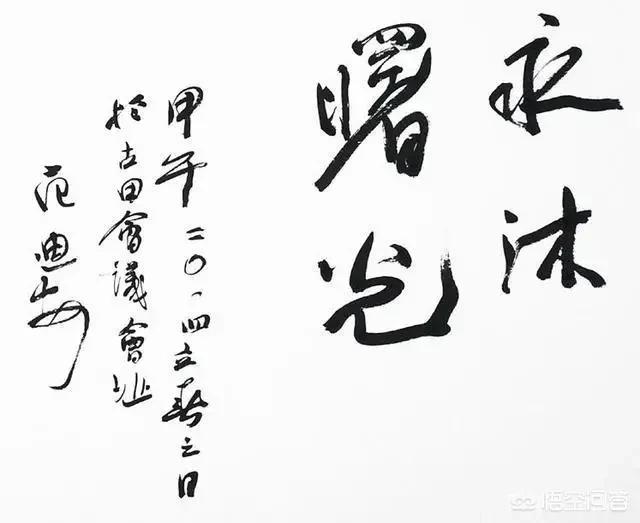 永沐
曙光
甲午二〇一四立春之日
於古田會議會址
范迪安
悟空问答